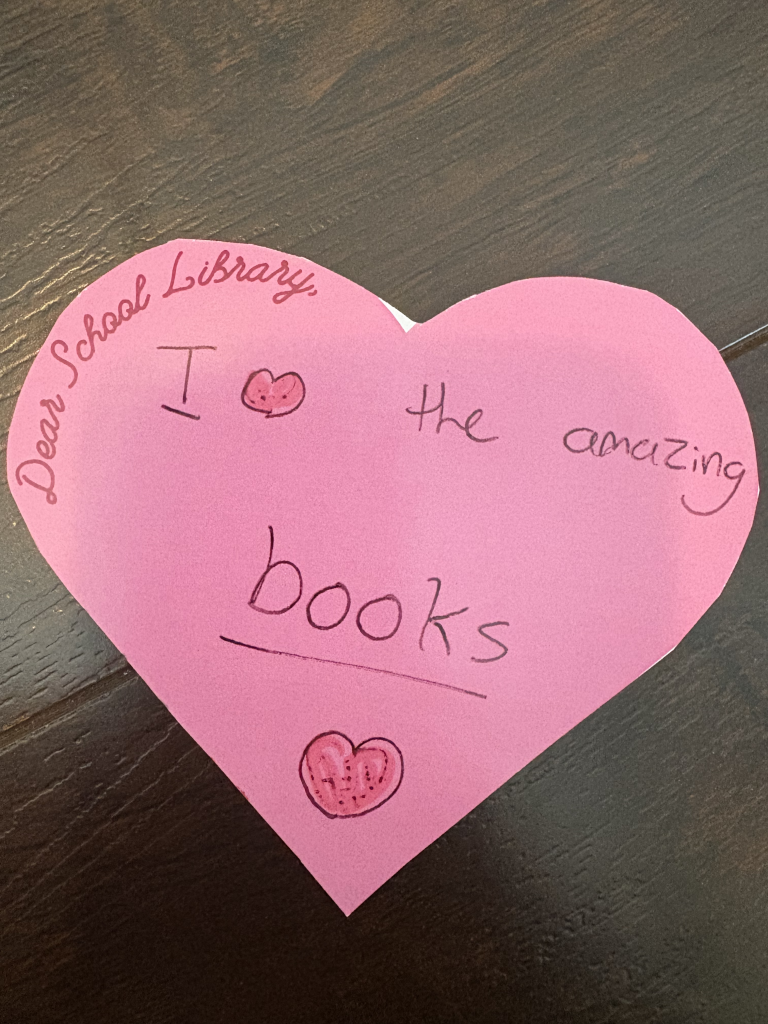 Dear School Library,
I ❤ the amazing
books